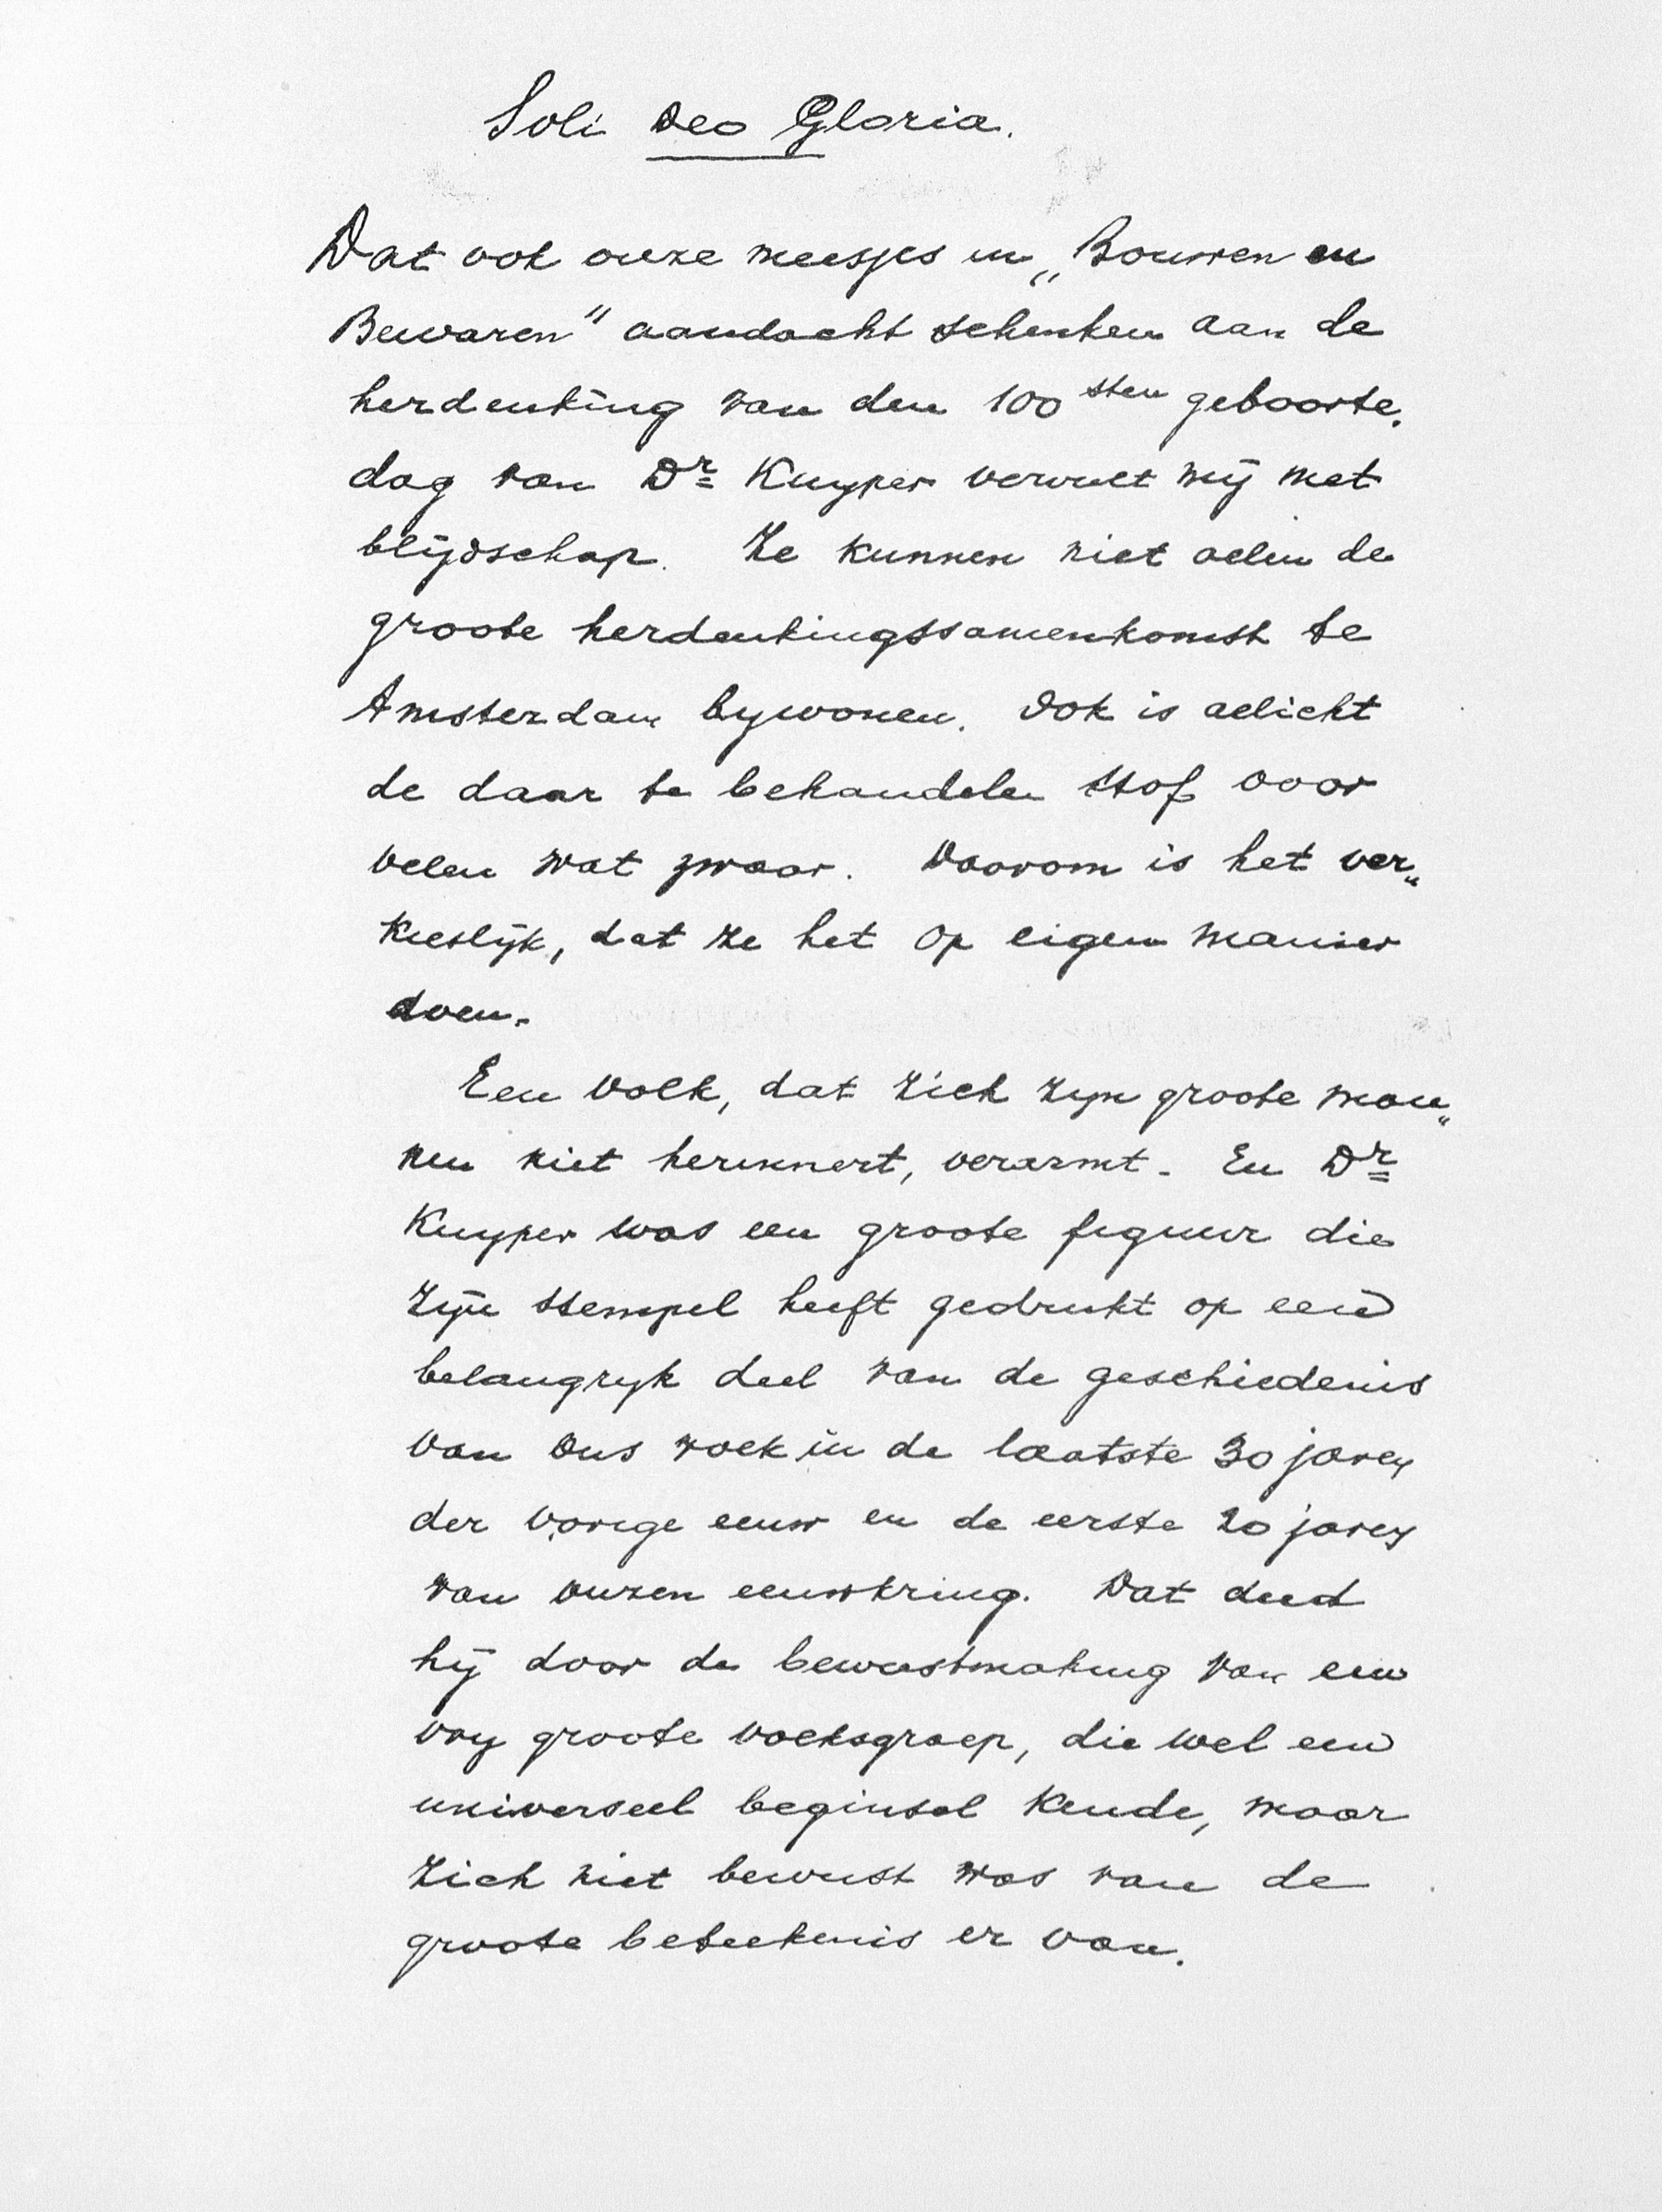 Soli Deo Gloria.
Dat ook onze meisjes in „Bouwen en
Bewaren" aandacht schenken aan de
herdenking van den 100sten geboorte-
dag van Dr Kuyper vervult mij met
blijdschap. Ze kunnen niet allen de
groote herdenkingssamenkomst te
Amsterdam bywonen. Ook is allicht
de daar te behandelen stof voor
velen wat zwaar. Daarom is het ver„
kieslijk, dat ze het op eigen manier
doen.
Een volk, dat zich zyn groote man„
nen niet herinnert, verarmt. En Dr
Kuyper was een groote figuur die
zijn stempel heeft gedrukt op een
belangryk deel van de geschiedenis
van ons volk in de laatste 30 jaren
der vorige eeuw en de eerste 20 jaren
van onzen eeuwkring. Dat deed
hij door de bewustmaking van een
vry groote volksgroep, die wel een
universeel beginsel kende, maar
zich niet bewust was van de
groote beteekenis er van.